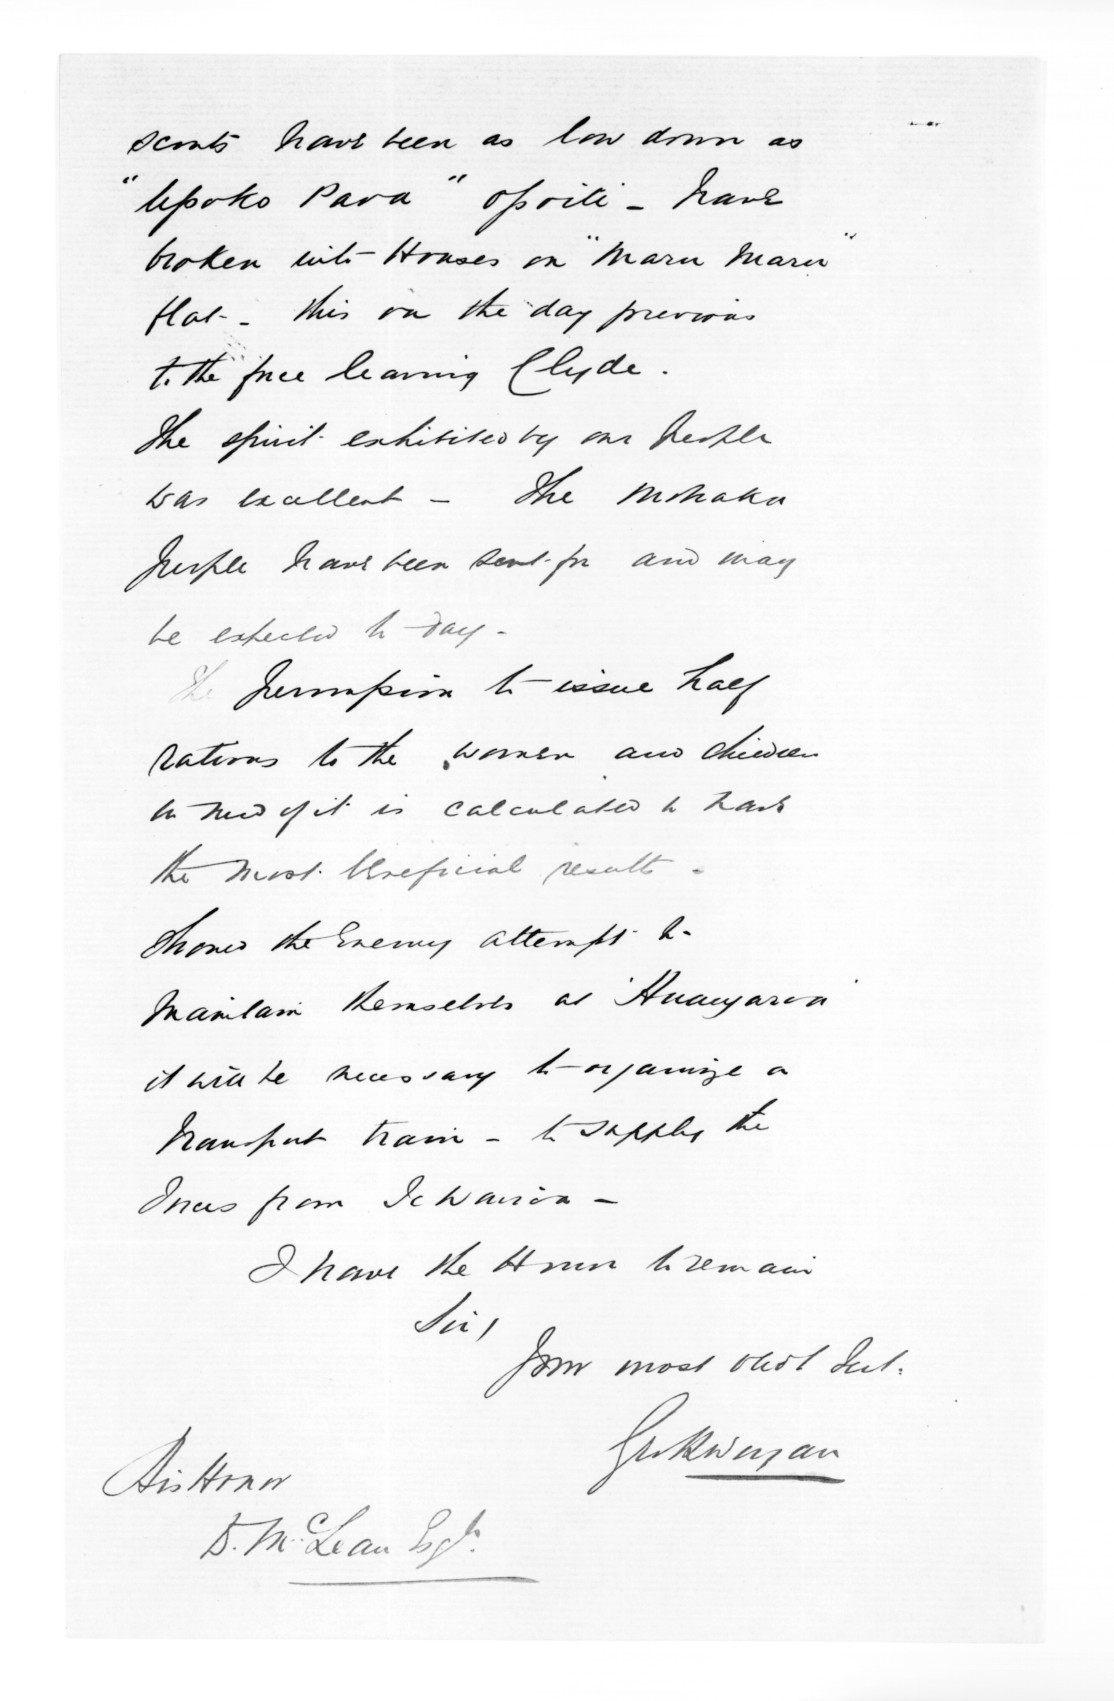 scouts have been as low down as
"Upoko Pava" Opoiti - have
broken into Houses on "Maru Maru"
flat - this on the day previous
to the force leaving Clyde.
The spirit exhibited by our people
was excellent - The Mohaka
people have been sent for and may
be expected to day -
The permission to issue half
rations to the women and children
in need of it is calculated to have
the most beneficial results -
Should the Enemy attempt to
Maintain themselves at
it will be necessary to organize a
Transport train - to supply the
Forces from Te Wairoa -
I have the Honor to remain
Sir,
Your most obdt Sert.
His Honor
D. McLean Esqr.